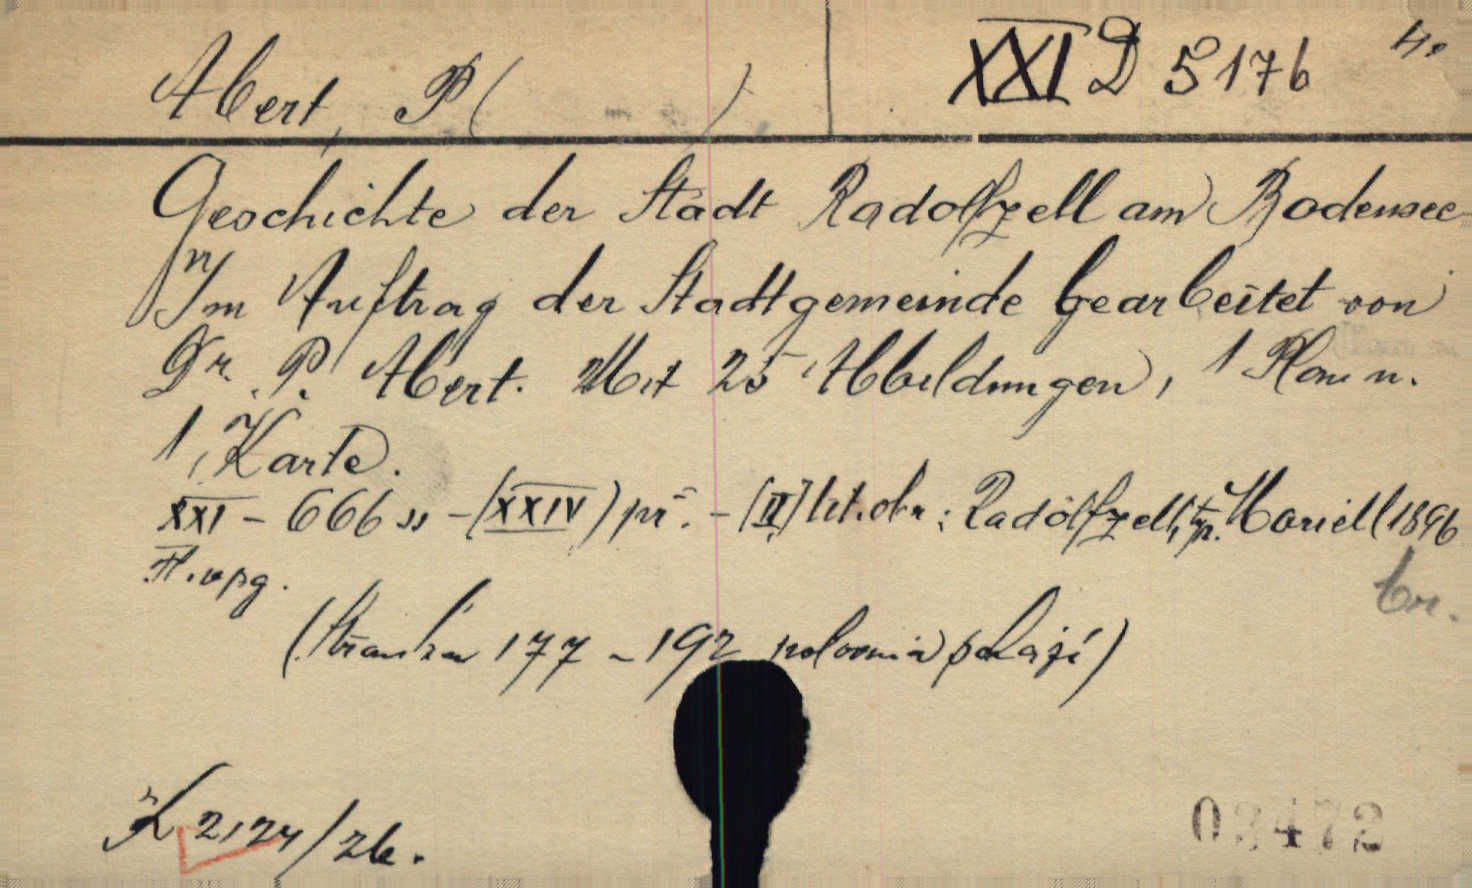 Abert, P( )
XXI D 5176 4°
Geschichte der Stadt Radolfzell am Bodensee
Im Auftrag der Stadtgemeinde bearbeitet von
Dr. P. Abert. Mit 25 Abbildungen, 1 Plan u.
1 Karte.
XXI – 666 ss – (XXIV) př. – [II] tit. obr.: Radolfzell, typ. Moriell 1896
(Stránka 177 – 192 schází)
K 2124/26.
03472